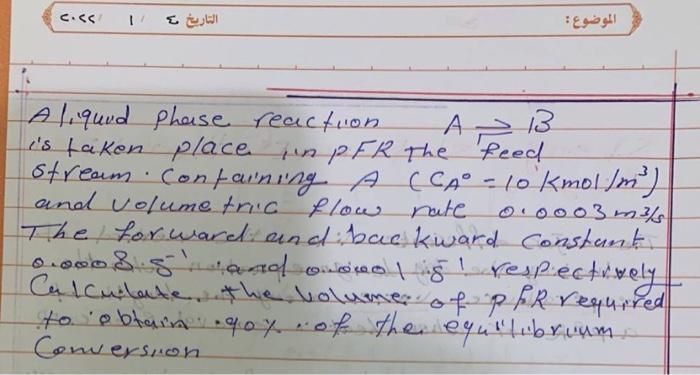 الموضوع: التاريخ ٤ / ١ / ٢٠٢٢
A liquid phase reaction A ⇌ B
is taken place in PFR The feed
stream. Containing A (CA° = 10 Kmol/m³)
and volumetric flow rate 0.0003 m³/s
The forward and backward Constant
0.0008 s⁻¹ and 0.0001 s⁻¹ respectively
Calculate the volume of PFR required
to obtain 90% of the equilibrium
Conversion